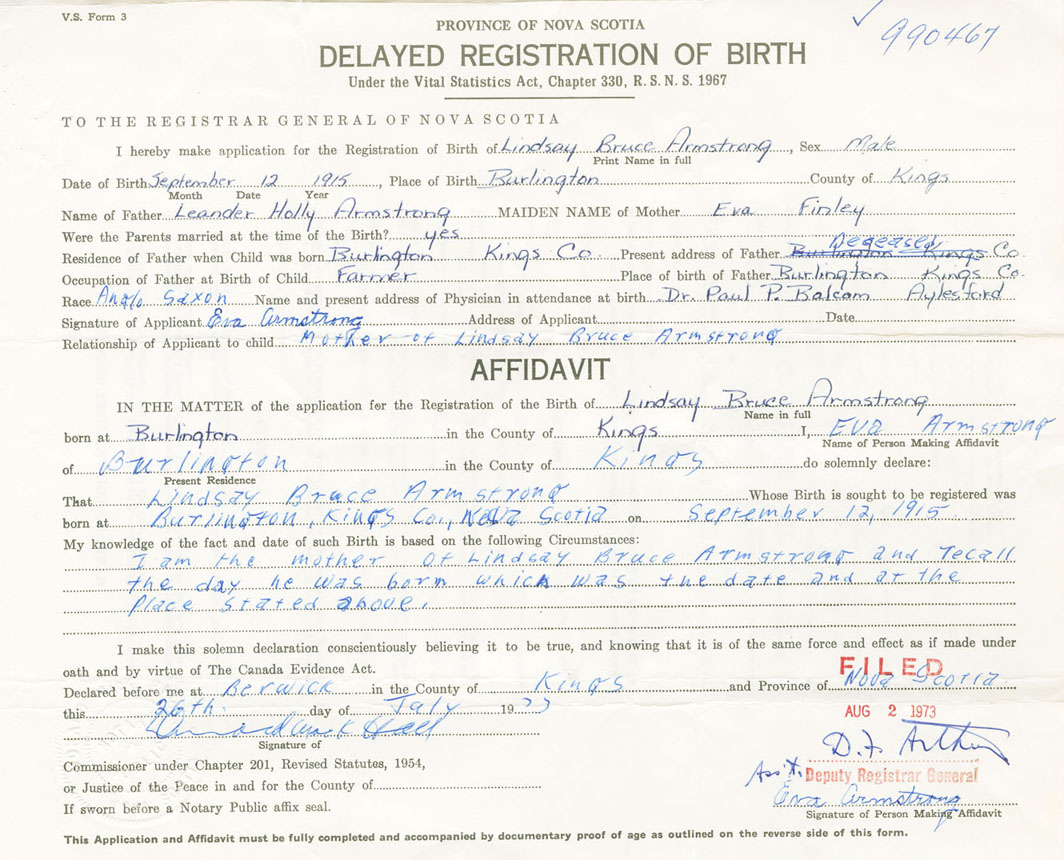 V.S. Form 3
990467
PROVINCE OF NOVA SCOTIA
DELAYED REGISTRATION OF BIRTH
Under the Vital Statistics Act, Chapter 330, R.S.N.S. 1967
TO THE REGISTRAR GENERAL OF NOVA SCOTIA
I hereby make application for the Registration of Birth of Lindsay Bruce Armstrong, Sex Male
Print Name in full
Date of Birth September 12 1915, Place of Birth Burlington County of Kings
Month Date Year
Name of Father Leander Holly Armstrong MAIDEN NAME of Mother Eva Finley
Were the Parents married at the time of the Birth? yes
Deceased
Residence of Father when Child was born Burlington Kings Co. Present address of Father Burlington Kings Co.
Occupation of Father at Birth of Child Farmer Place of birth of Father Burlington Kings Co.
Race Anglo Saxon Name and present address of Physician in attendance at birth Dr. Paul P. Balcom Aylesford
Signature of Applicant Eva Armstrong Address of Applicant Date
Relationship of Applicant to child Mother of Lindsay Bruce Armstrong
AFFIDAVIT
IN THE MATTER of the application for the Registration of the Birth of Lindsay Bruce Armstrong
Name in full
born at Burlington in the County of Kings I, Eva Armstrong
Name of Person Making Affidavit
of Burlington in the County of Kings do solemnly declare:
Present Residence
That Lindsay Bruce Armstrong Whose Birth is sought to be registered was
born at Burlington, Kings Co., Nova Scotia on September 12, 1915
My knowledge of the fact and date of such Birth is based on the following Circumstances:
I am the mother of Lindsay Bruce Armstrong and recall
the day he was born which was the date and at the
place stated above.
I make this solemn declaration conscientiously believing it to be true, and knowing that it is of the same force and effect as if made under
oath and by virtue of The Canada Evidence Act.
FILED
Declared before me at Berwick in the County of Kings and Province of Nova Scotia
this 26th. day of July 19
AUG 2 1973
Signature of
D.F. Arthur
Commissioner under Chapter 201, Revised Statutes, 1954,
Ass't. Deputy Registrar General
or Justice of the Peace in and for the County of
Eva Armstrong
If sworn before a Notary Public affix seal.
Signature of Person Making Affidavit
This Application and Affidavit must be fully completed and accompanied by documentary proof of age as outlined on the reverse side of this form.